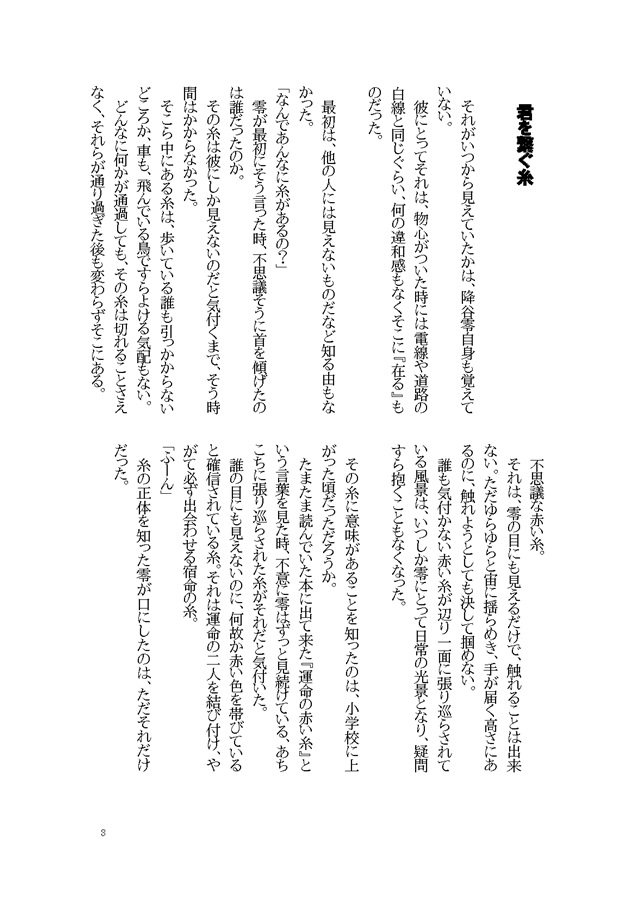 君を繋ぐ糸
それがいつから見えていたかは、降谷零自身も覚えて
いない。
彼にとってそれは、物心がついた時には電線や道路の
白線と同じぐらい、何の違和感もなくそこに『在る』も
のだった。
最初は、他の人には見えないものだなど知る由もな
かった。
「なんであんなに糸があるの？」
零が最初にそう言った時、不思議そうに首を傾げたの
は誰だったのか。
その糸は彼にしか見えないのだと気付くまで、そう時
間はかからなかった。
そこら中にある糸は、歩いている誰も引っかからない
どころか、車も、飛んでいる鳥ですらよける気配もない。
どんなに何かが通過しても、その糸は切れることさえ
なく、それらが通り過ぎた後も変わらずそこにある。
不思議な赤い糸。
それは、零の目にも見えるだけで、触れることは出来
ない。ただゆらゆらと宙に揺らめき、手が届く高さにあ
るのに、触れようとしても決して掴めない。
誰も気付かない赤い糸が辺り一面に張り巡らされて
いる風景は、いつしか零にとって日常の光景となり、疑問
すら抱くこともなくなった。
その糸に意味があることを知ったのは、小学校に上
がった頃だっただろうか。
たまたま読んでいた本に出て来た『運命の赤い糸』と
いう言葉を見た時、不意に零はずっと見続けている、あち
こちに張り巡らされた糸がそれだと気付いた。
誰の目にも見えないのに、何故か赤い色を帯びている
と確信されている糸。それは運命の二人を結び付け、や
がて必ず出会わせる宿命の糸。
「ふーん」
糸の正体を知った零が口にしたのは、ただそれだけ
だった。
3